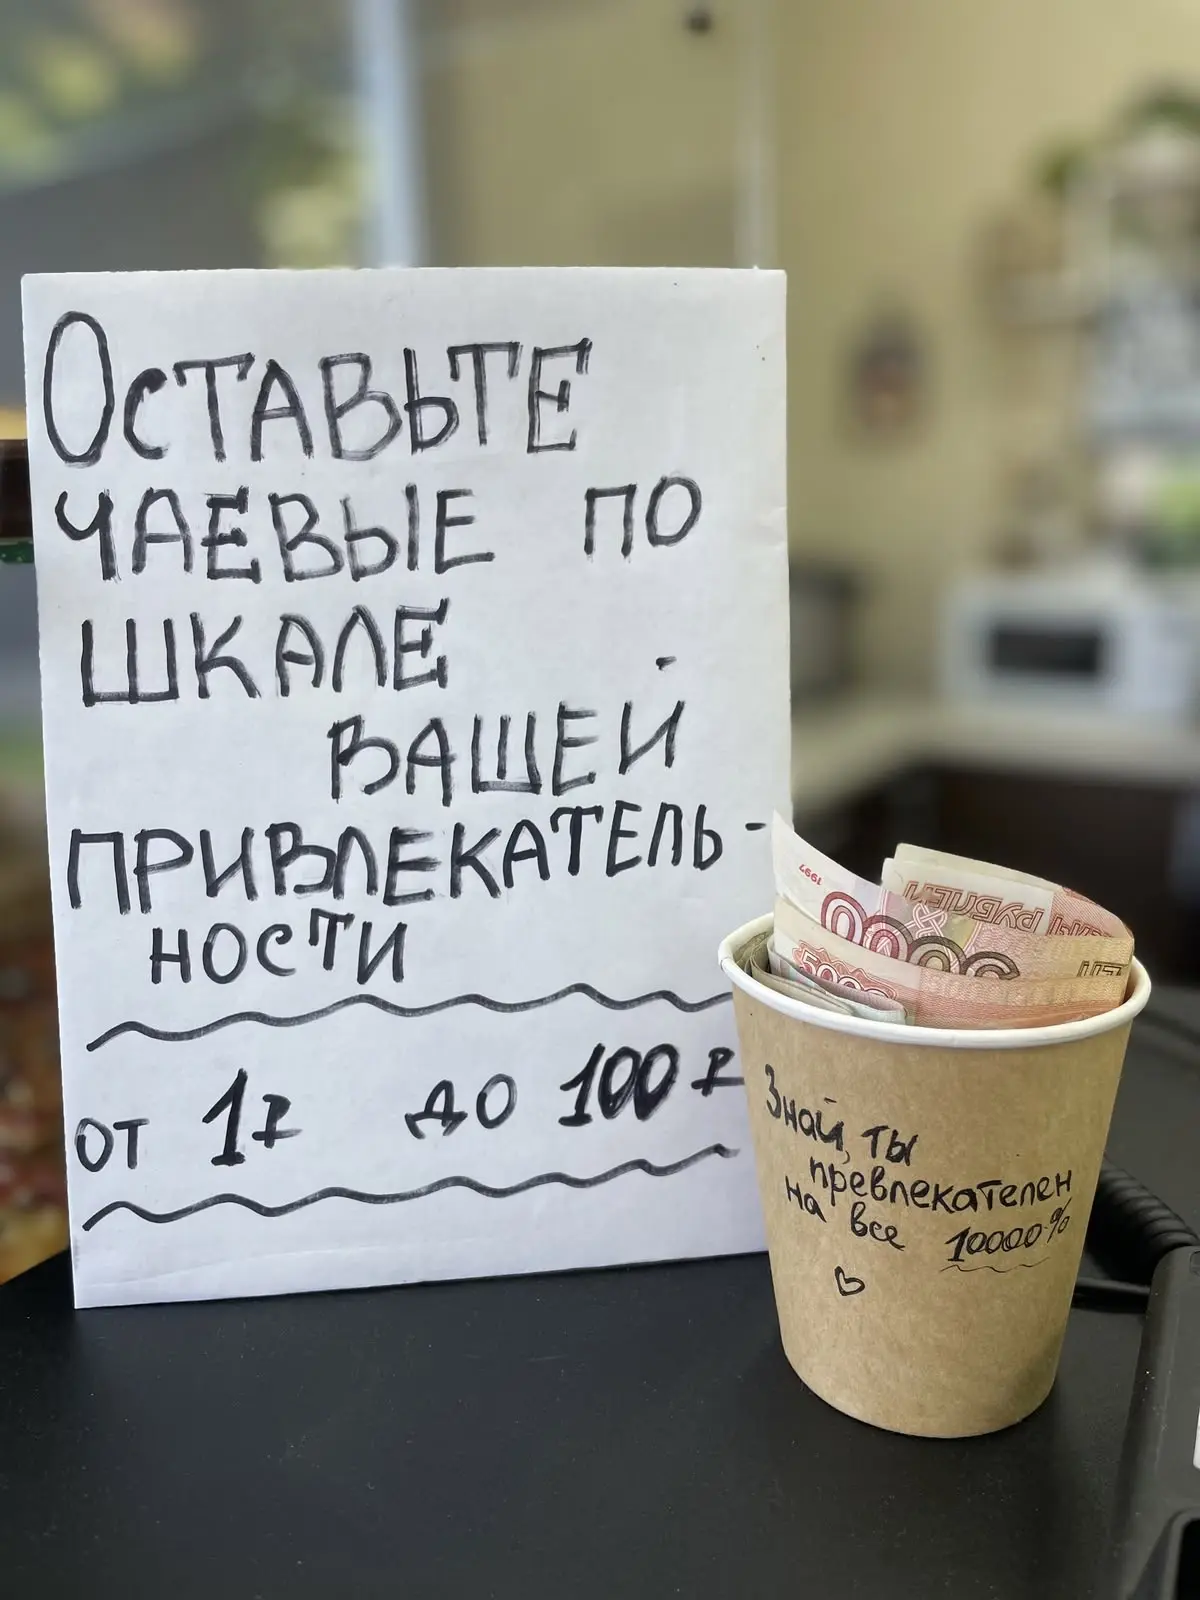 Оставьте
чаевые по
шкале
вашей
привлекатель-
ности
от 1₽ до 100₽
1997
5000
Знай, ты
превлекателен
на все 10000%